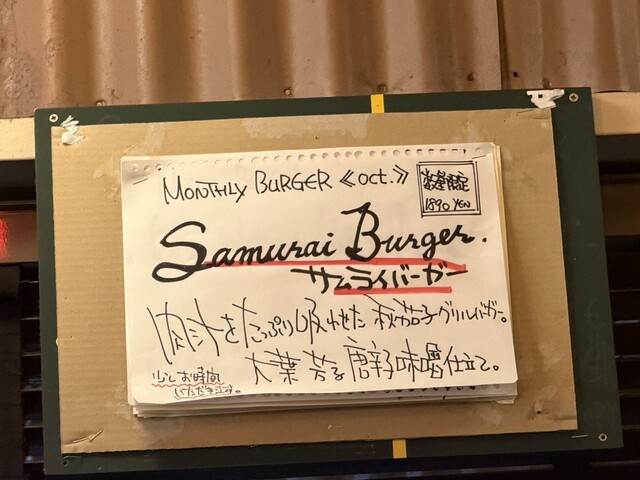 MONTHLY BURGER 《oct.》
数量限定
1890 YEN
Samurai Burger.
サムライバーガー
肉汁をたっぷり吸わせた 秋茄子グリルバーガー。
大葉芳る 唐辛子味噌仕立て。
少しお時間
いただきます。